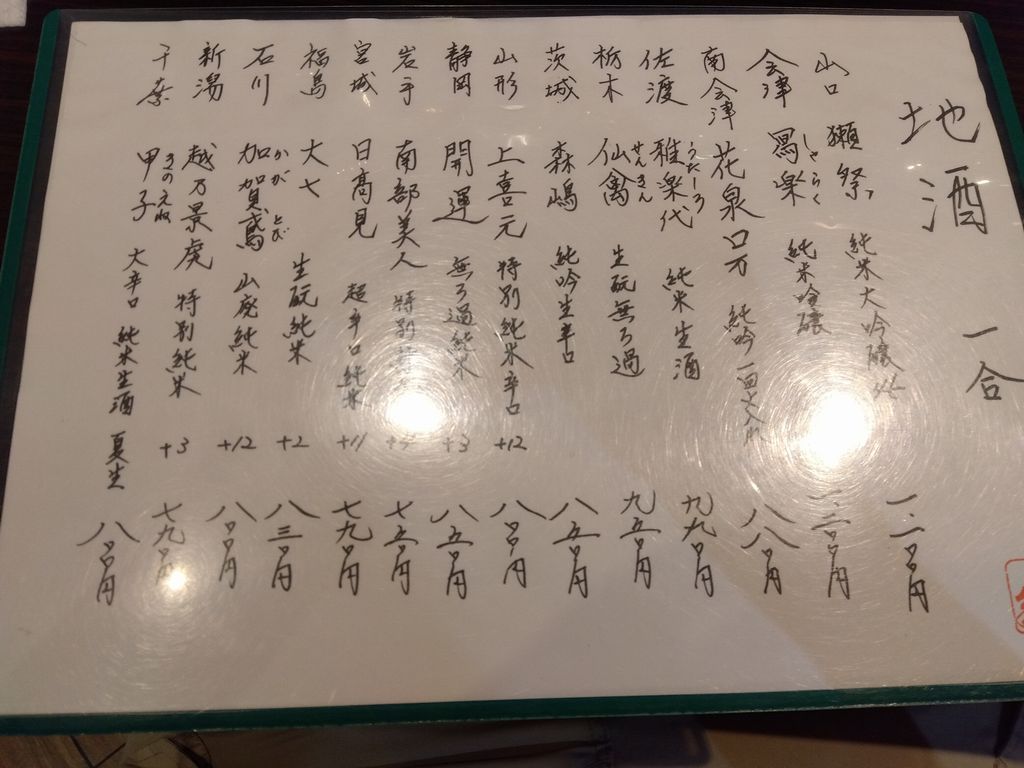 地酒 一合
山口 獺祭 純米大吟醸 一、二〇〇円
会津 冩楽 しゃらく 純米吟醸 一三〇〇円
南会津 花泉 ロ万 純吟 一回火入れ 八八〇円
佐渡 雅楽代 うたしろ 純米生酒 九九〇円
栃木 仙禽 せんきん 生酛無ろ過 九五〇円
茨城 森嶋 純吟生辛口 八五〇円
山形 上喜元 特別純米辛口 +12 八〇〇円
静岡 開運 無ろ過純米 +3 八五〇円
岩手 南部美人 特別純米 七五〇円
宮城 日高見 超辛口純米 +11 七九〇円
福島 大七 生酛純米 +2 八三〇円
石川 加賀鳶 かがとび 山廃純米 +12 八〇〇円
新潟 越乃景虎 特別純米 +3 七九〇円
千葉 甲子 きのえね 大辛口 純米生酒 夏生 八〇〇円